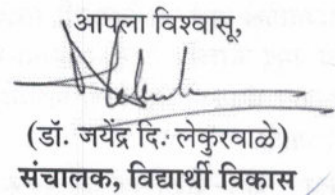 आपला विश्वासू,
(डॉ. जयेंद्र दि. लेकुरवाळे)
संचालक, विद्यार्थी विकास